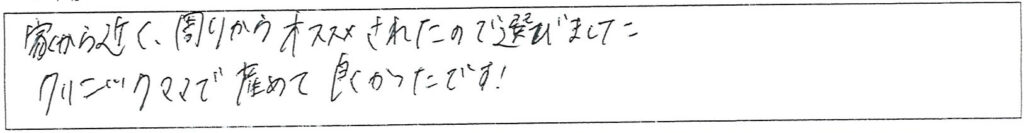 家から近く、周りからオススメされたので選びました
クリニックママで産めて良かったです!